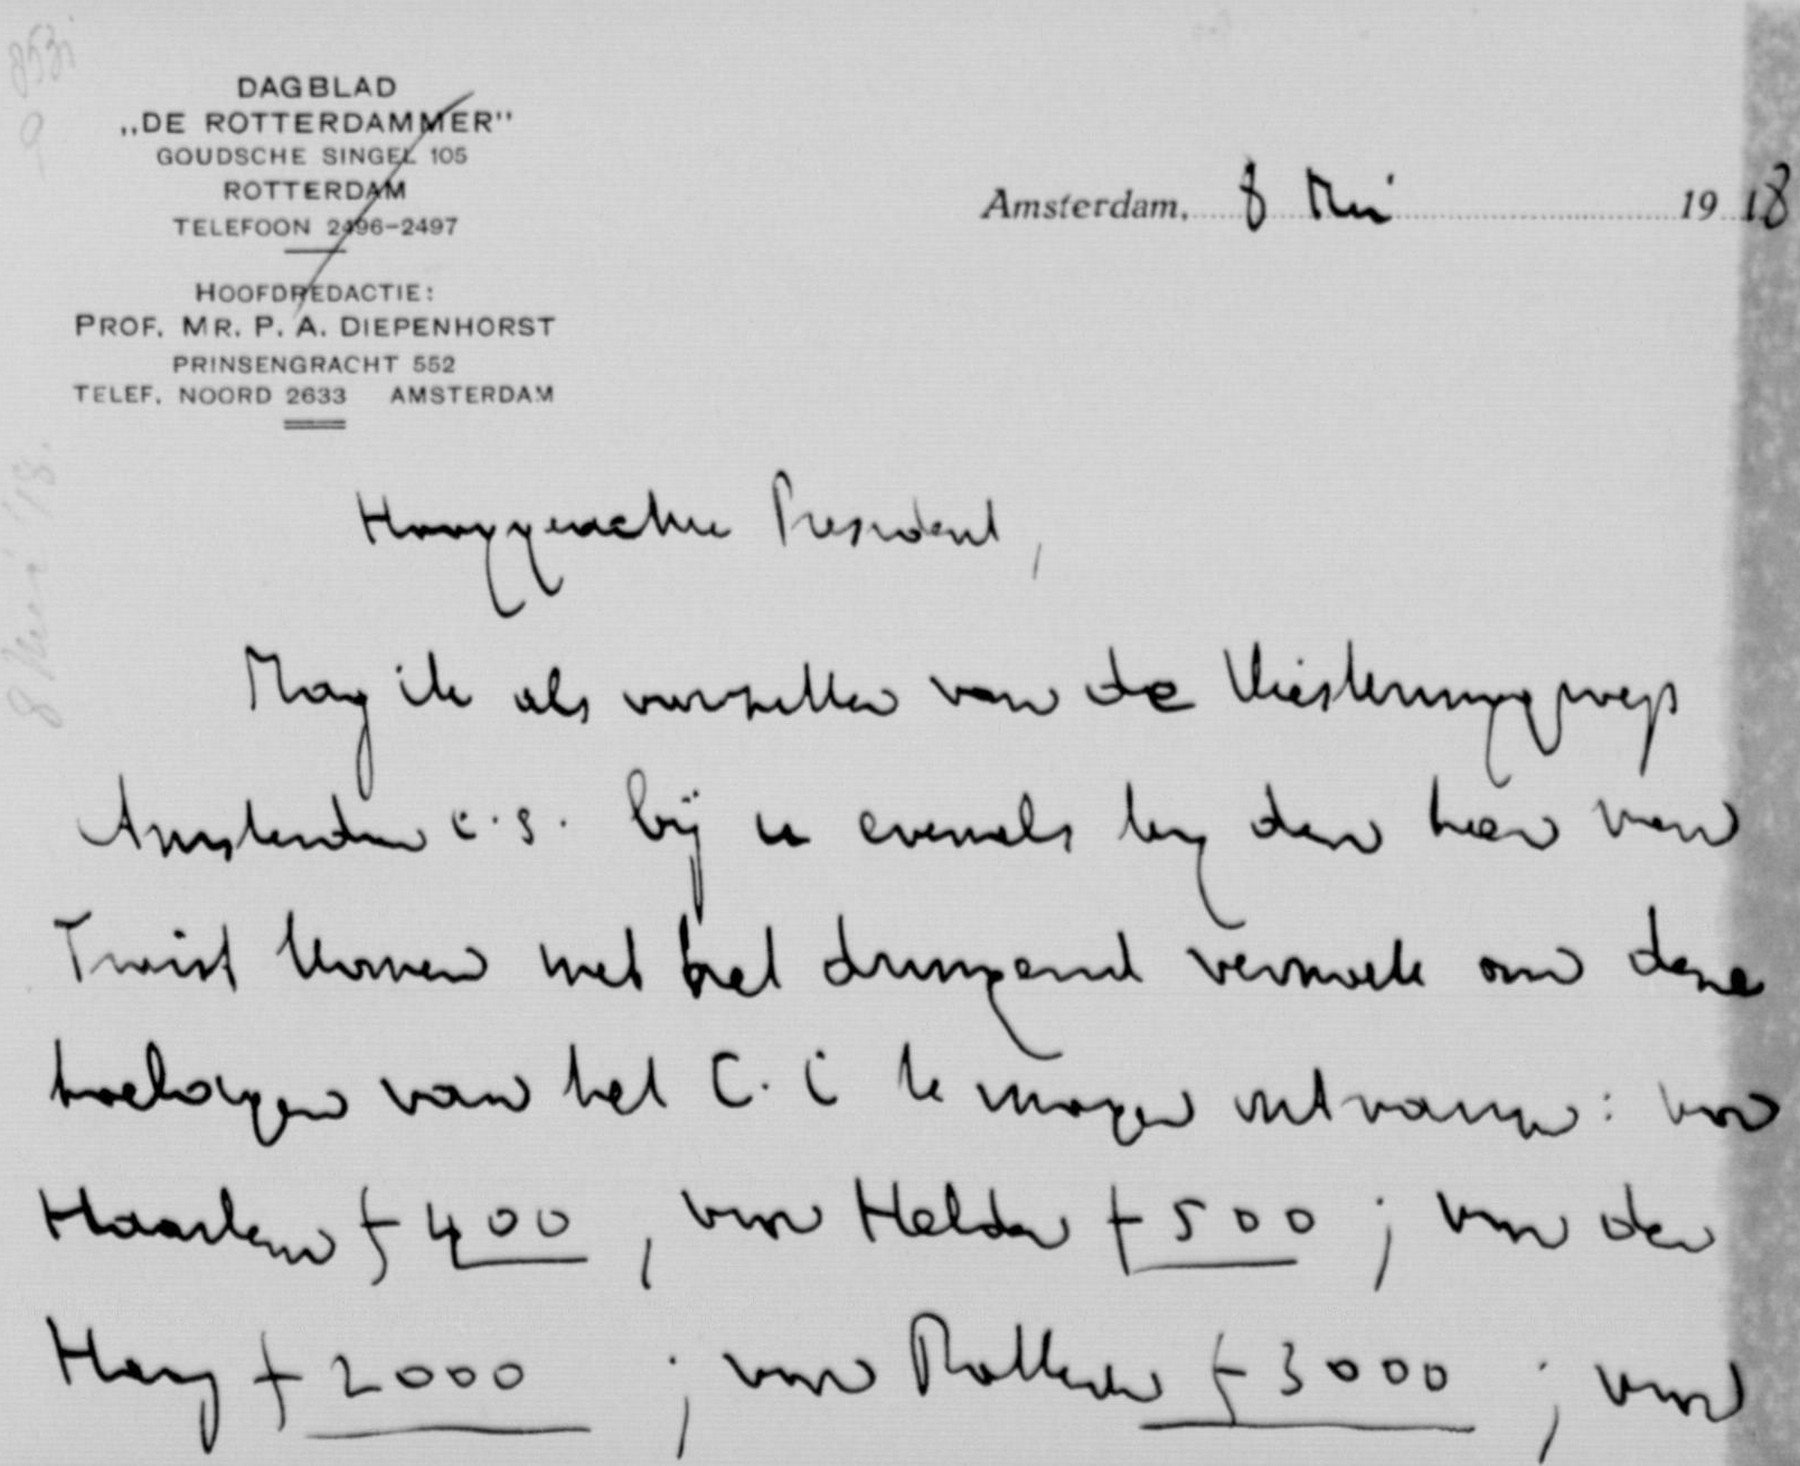 DAGBLAD
„DE ROTTERDAMMER"
GOUDSCHE SINGEL 105
ROTTERDAM
TELEFOON 2496-2497
HOOFDREDACTIE:
PROF. MR. P. A. DIEPENHORST
PRINSENGRACHT 552
TELEF. NOORD 2633 AMSTERDAM
Amsterdam, 8 Mei 1918
8 Mei '18.
Hooggeachte President,
Mag ik als voorzitter van de Kiesvereeniging
Amsterdam c.s. bij u evenals bij den heer van
Twist komen met het dringend verzoek om deze
bedragen van het C.C te mogen ontvangen: voor
Haarlem f 400, voor Helder f 500; voor den
Haag f 2000; voor Rotterdam f 3000; voor